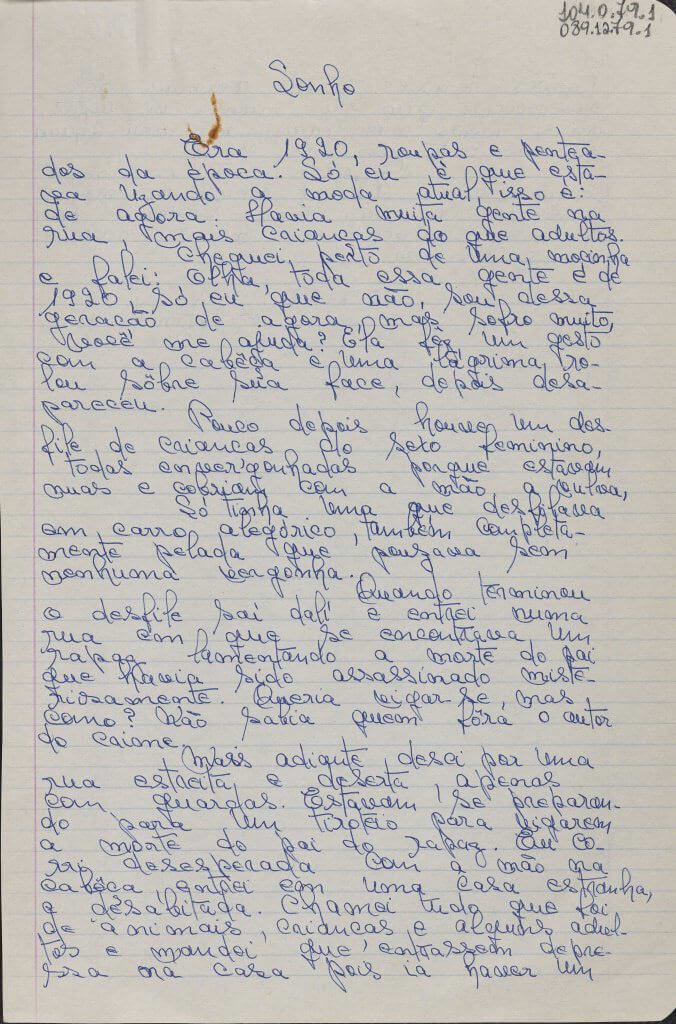 104.0.79.1
089.12.79-1
Sonho
Era 1920, roupas e pentea-
dos da época. Só eu é que esta-
va uzando a moda atual, isso é:
de agora. Havia muita gente na
rua, mais criancas do que adultos.
Cheguei perto de uma mocinha
e falei: Olha, toda essa gente é de
1920, só eu que não, sou dessa
geração de agora, mas sofro muito,
você me ajuda? Ela fez um gesto
com a cabêça e uma lágrima ro-
lou sôbre sua face, depois desa-
pareceu.
Pouco depois houve um des-
file de criancas do sexo feminino,
todas envergonhadas porque estavam
nuas e cobriam com a mão a vulva,
Só tinha uma que desfilava
em carro alegórico, também completa-
mente pelada que pouzava sem
nenhuma vergonha.
Quando terminou
o desfile saí dalí e entrei numa
rua em que se encontrava um
rapaz lamentando a morte do pai
que havia sido assassinado miste-
riosamente. Queria vigar-se, mas,
como? Não sabia quem fôra o autor
do crime.
Mais adiante, desci por uma
rua estreita e deserta, apenas
com guardas. Estavam se preparan-
do para um tiroteio para vigarem
a morte do pai do rapaz. Eu co-
rri desesperada com a mão na
cabêça, entrei em uma casa estranha,
e desabitada. Chamei tudo que foi
de animais, criancas e alguns adul-
tos e mandei que entrassem depre-
ssa na casa pois ia haver um